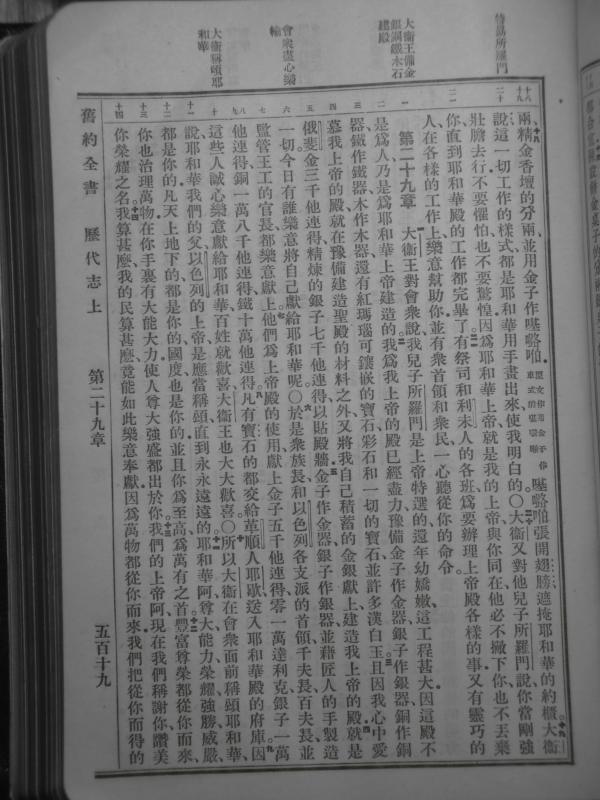 兩精金香壇的分兩並用金子作𠼻𡀔𠺢
𠼻𡀔𠺢張開翅膀遮掩耶和華的約櫃大衛
說這一切工作的樣式都是耶和華用手畫出來使我明白的〇大衛又對他兒子所羅門說你當剛強
壯膽去行不要懼怕也不要驚惶因爲耶和華上帝就是我的上帝與你同在他必不撇下你也不丟棄
你直到耶和華殿的工作都完畢了有祭司和利未人的各班爲要辦理上帝殿各樣的事又有靈巧的
人在各樣的工作上樂意幫助你並有衆首領和衆民一心聽從你的命令
第二十九章 大衛王對會衆說我兒子所羅門是上帝特選的還年幼嬌嫩這工程甚大因這殿不
是爲人乃是爲耶和華上帝建造的我爲我上帝的殿已經盡力豫備金子作金器銀子作銀器銅作銅
器鐵作鐵器木作木器還有紅瑪瑙可鑲嵌的寶石彩石和一切的寶石並許多漢白玉且因我心中愛
慕我上帝的殿就在豫備建造聖殿的材料之外又將我自己積蓄的金銀獻上建造我上帝的殿就是
俄斐金三千他連得精煉的銀子七千他連得以貼殿牆金子作金器銀子作銀器並藉匠人的手製造
一切今日有誰樂意將自己獻給耶和華呢〇於是衆族長和以色列各支派的首領千夫長百夫長並
監管王工的官長都樂意獻上他們爲上帝殿的使用獻上金子五千他連得零一萬達利克銀子一萬
他連得銅一萬八千他連得鐵十萬他連得凡有寶石的都交給革順人耶歇送入耶和華殿的府庫因
這些人誠心樂意獻給耶和華百姓就歡喜大衛王也大大歡喜〇所以大衛在會衆面前稱頌耶和華
說耶和華我們的父以色列的上帝是應當稱頌直到永永遠遠的耶和華阿尊大能力榮耀強勝威嚴
都是你的凡天上地下的都是你的國度也是你的並且你爲至高爲萬有之首豐富尊榮都從你而來
你也治理萬物在你手裏有大能大力使人尊大強盛都出於你我們的上帝阿現在我們稱謝你讚美
你榮耀之名我算甚麼我的民算甚麼竟能如此樂意奉獻因爲萬物都從你而來我們把從你而得的
大衛王備金
銀銅鐵木石
建殿
會衆盡心樂
輸
大衛稱頌耶
和華
舊約全書 歷代志上 第二十九章 五百十九